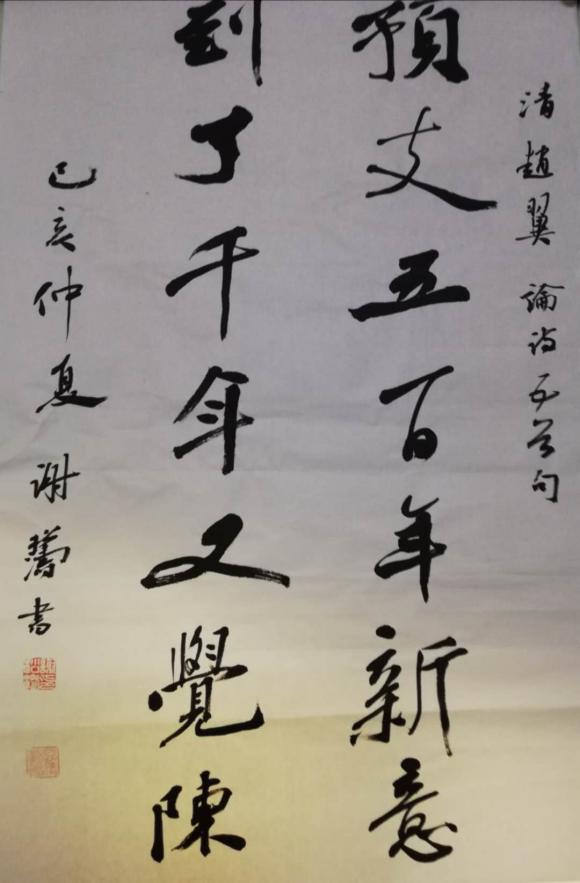 清趙翼 論詩五首句
預支五百年新意
到了千年又覺陳
己亥仲夏 謝 書